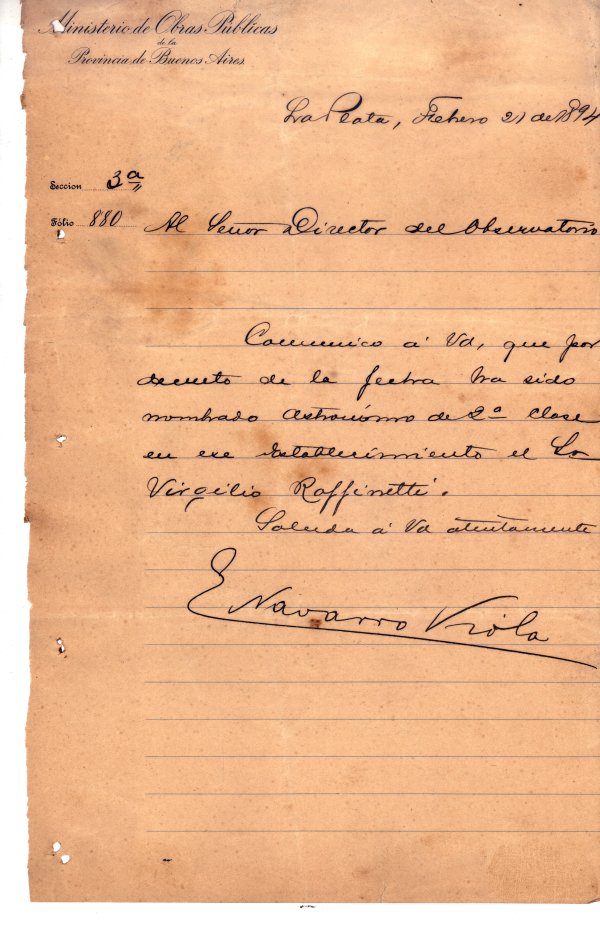 Ministerio de Obras Públicas
de la
Provincia de Buenos Aires.
La Plata, Febrero 21 de 1894
Seccion 3ª
Fólio 880
Al Señor Director del Observatorio
Comunico á Vd, que por
decreto de la fecha ha sido
nombrado astrónomo de 2ª clase
en ese establecimiento el Sr
Virgilio Raffinetti.
Saluda á Vd atentamente
E Navarro Viola